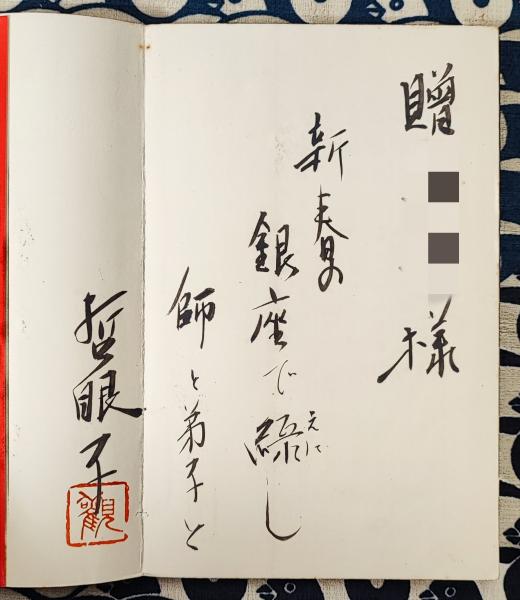 贈
様
新春の
銀座で縁し
えに
師と弟子と
哲眼子
觀